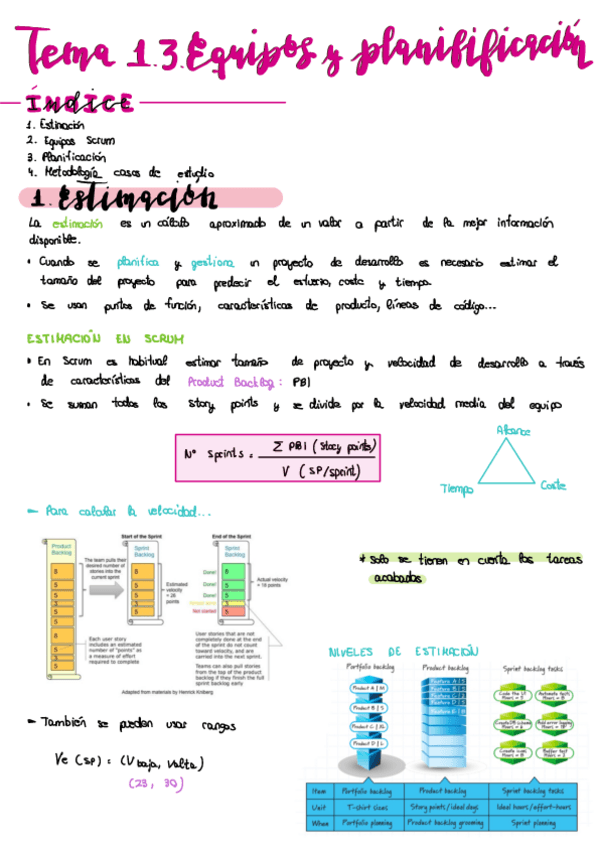 Tema 1.3. Equipos y planifificación
ÍNDICE
1. Estimación
2. Equipos Scrum
3. Planificación
4. Metodología casos de estudio
1. Estimación
La estimación es un cálculo aproximado de un valor a partir de la mejor información
disponible.
• Cuando se planifica y gestiona un proyecto de desarrollo es necesario estimar el
tamaño del proyecto para predecir el esfuerzo, coste y tiempo.
• Se usan puntos de función, características de producto, líneas de código...
ESTIMACIÓN EN SCRUM
• En Scrum es habitual estimar tamaño de proyecto y velocidad de desarrollo a través
de características del Product Backlog: PBI
• Se suman todos los story points y se divide por la velocidad media del equipo
Nº Sprints = Σ PBI (Story points)
V (SP/sprint)
Alcance
Tiempo
Coste
– Para calcular la velocidad...
Start of the Sprint
End of the Sprint
Product Backlog
Sprint Backlog
Sprint Backlog
The team pulls their
desired number of
stories into the
current sprint
8
5
5
5
3
5
8
5
3
5
8
5
5
3
5
Estimated
velocity
= 26
points
Done!
Done!
Done!
Not started
8
5
5
3
5
Actual velocity
= 18 points
Each user story
includes an estimated
number of "points" as
a measure of effort
required to complete
User stories that are not
completely done at the end
of the sprint do not count
toward velocity, and are
carried into the next sprint.
Teams can also pull stories
from the top of the product
backlog if they finish the full
sprint backlog early
Adapted from materials by Henrick Kniberg
* Solo se tienen en cuenta las tareas
acabadas
NIVELES DE ESTIMACIÓN
Portfolio backlog
Product backlog
Sprint backlog tasks
Product A | M
Product B | S
Product C | XL
Product D | L
Feature A | 5
Feature B | 5
Feature C | 2
Feature D | 5
Code the UI
Automate tests
Create DB schema
Add error logging
Create icons
– También se pueden usar rangos
Ve (SP) = (V baja, V alta)
(23, 30)
Item Portfolio backlog Product backlog Sprint backlog tasks
Unit T-shirt sizes Story points/ideal days Ideal hours/effort-hours
When Portfolio planning Product backlog grooming Sprint planning